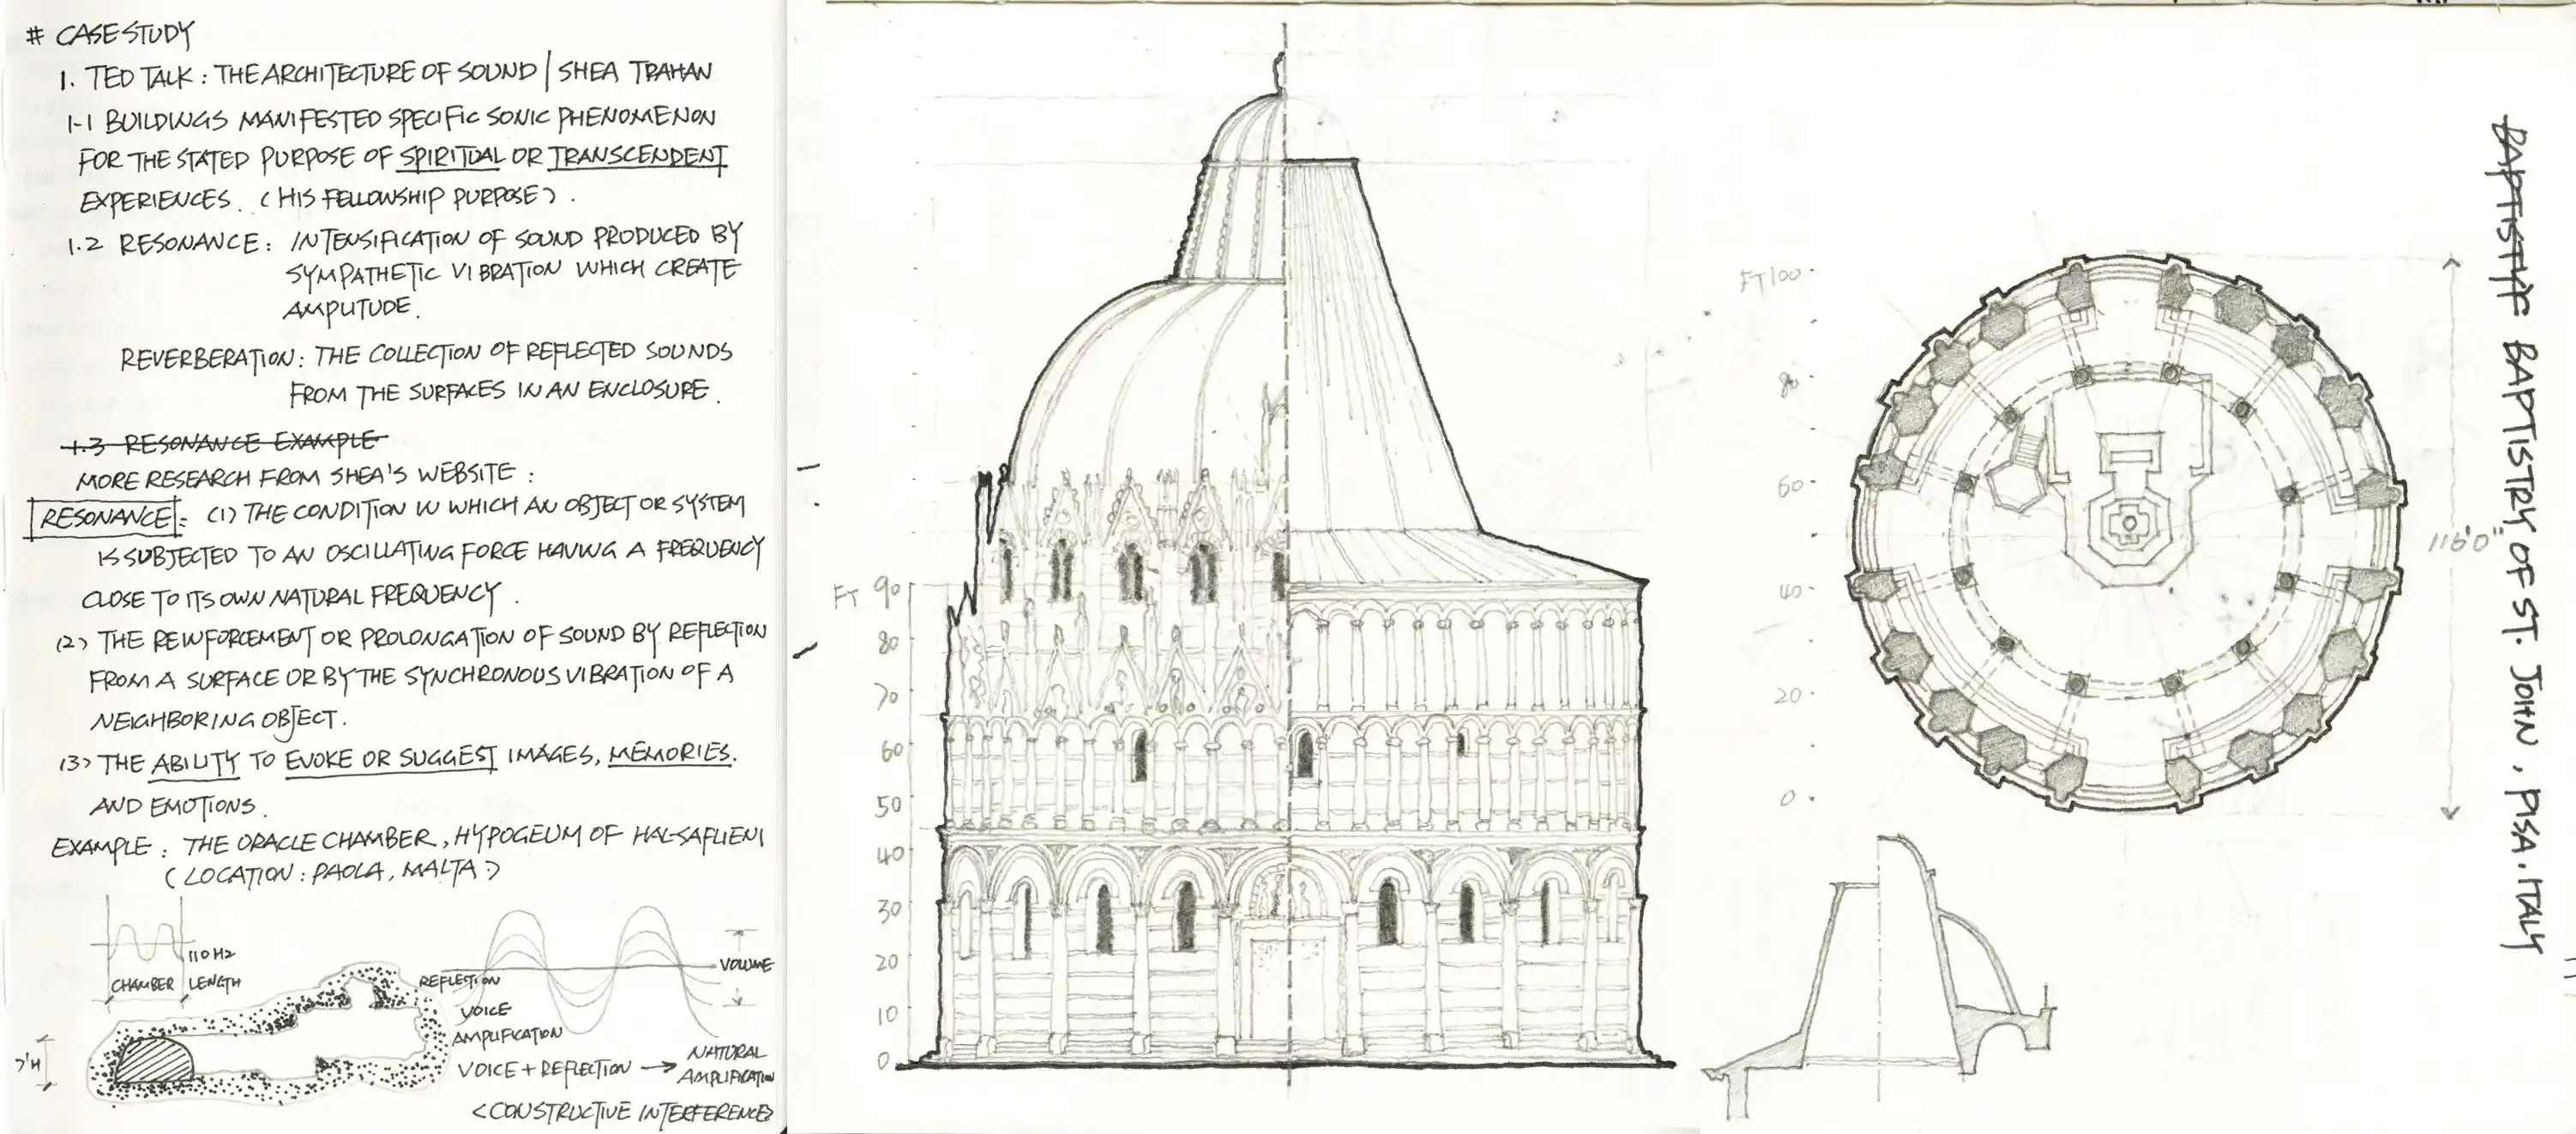 # CASE STUDY
1. TED TALK : THE ARCHITECTURE OF SOUND | SHEA TRAHAN
1-1 BUILDINGS MANIFESTED SPECIFIC SONIC PHENOMENON
FOR THE STATED PURPOSE OF SPIRITUAL OR TRANSCENDENT
EXPERIENCES. (HIS FELLOWSHIP PURPOSE).
1.2 RESONANCE : INTENSIFICATION OF SOUND PRODUCED BY
SYMPATHETIC VIBRATION WHICH CREATE
AMPLITUDE.
REVERBERATION : THE COLLECTION OF REFLECTED SOUNDS
FROM THE SURFACES IN AN ENCLOSURE.
1.3 RESONANCE EXAMPLE
MORE RESEARCH FROM SHEA'S WEBSITE :
RESONANCE : (1) THE CONDITION IN WHICH AN OBJECT OR SYSTEM
IS SUBJECTED TO AN OSCILLATING FORCE HAVING A FREQUENCY
CLOSE TO ITS OWN NATURAL FREQUENCY.
(2) THE REINFORCEMENT OR PROLONGATION OF SOUND BY REFLECTION
FROM A SURFACE OR BY THE SYNCHRONOUS VIBRATION OF A
NEIGHBORING OBJECT.
(3) THE ABILITY TO EVOKE OR SUGGEST IMAGES, MEMORIES.
AND EMOTIONS.
EXAMPLE : THE ORACLE CHAMBER, HYPOGEUM OF HAL-SAFLIENI
(LOCATION : PAOLA, MALTA)
110HZ
CHAMBER LENGTH
7'H
REFLECTION
VOICE
AMPLIFICATION
VOLUME
VOICE + REFLECTION → NATURAL
AMPLIFICATION
<CONSTRUCTIVE INTERFERENCE>
FT 90
80
70
60
50
40
30
20
10
0
FT 100
80
60
40
20
0
116'0"
BAPTISTRY OF ST. JOHN . PISA . ITALY